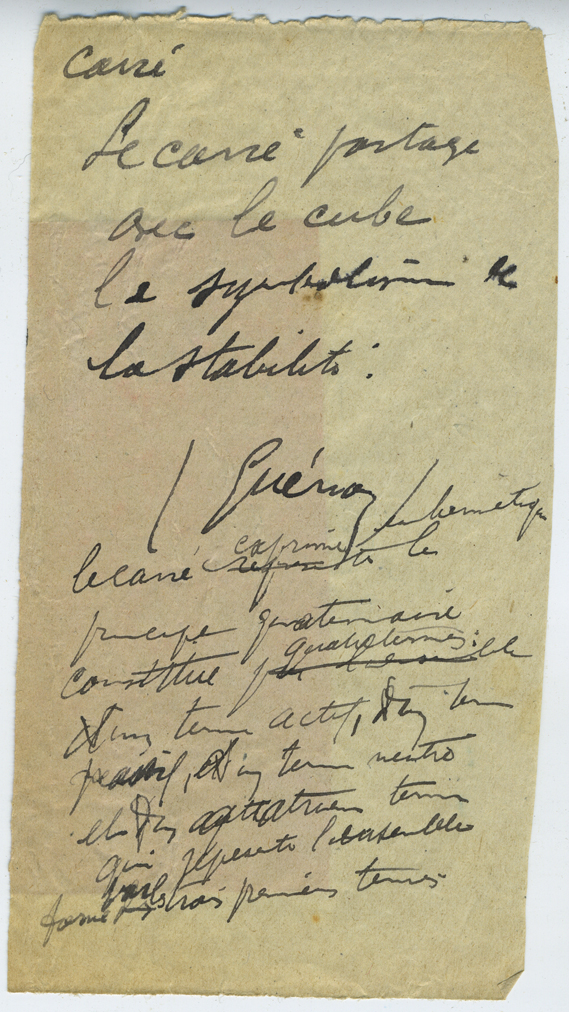 carré
Le carré partage
avec le cube
le symbolisme de
la stabilité.
(Guénon)
en hermétique
le carré exprime représente le
principe quaternaire
quatre termes:
constitué par l'ensemble
d'un terme actif, d'un terme
passif, d'un terme neutre
et d'un quatrième terme
qui représente l'ensemble
formé par les trois premiers termes